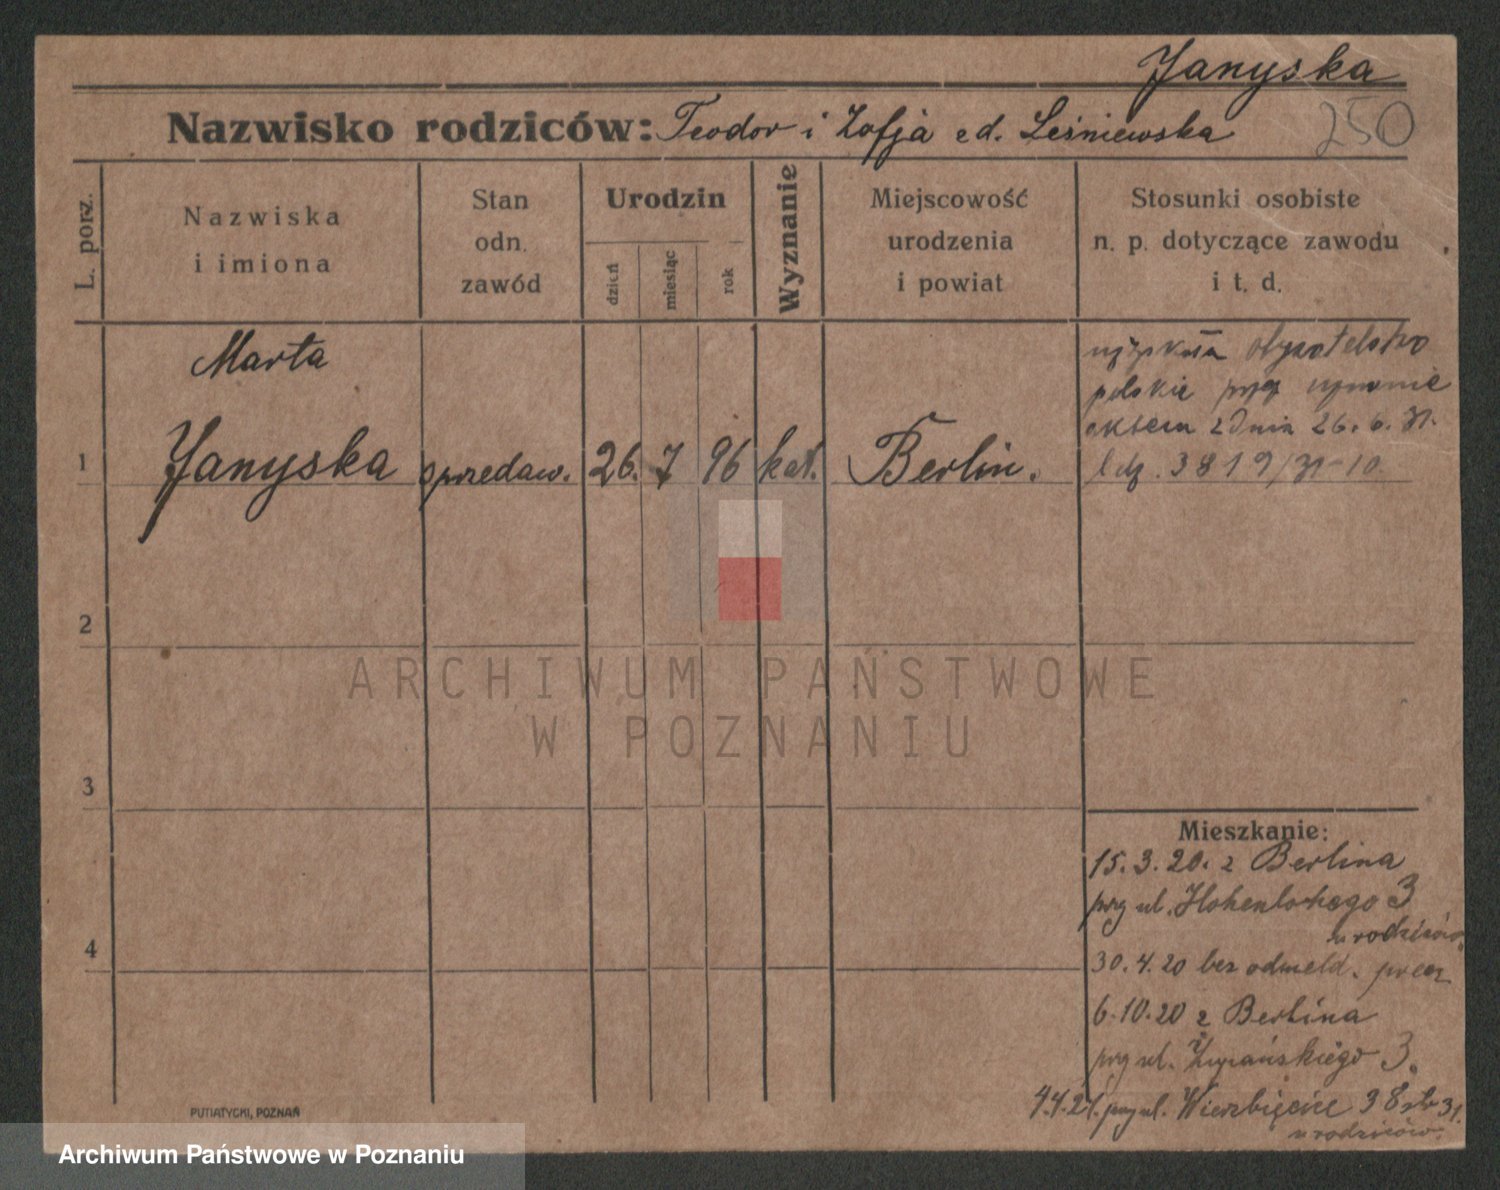 Janyska
Nazwisko rodziców: Teodor i Zofja zd. Leśniewska
250
L. porz.
Nazwiska
i imiona
Stan
odn.
zawód
Urodzin
dzień
miesiąc
rok
Wyznanie
Miejscowość
urodzenia
i powiat
Stosunki osobiste
n. p. dotyczące zawodu
i t. d.
Marta
1 Janyska sprzedaw. 26. 7 96 kat. Berlin.
uzyskała obywatelstwo
polskie przez uznanie
aktem z dnia 26.6.31.
ldz. 3819/31-10.
2
3
4
Mieszkanie:
15.3.20. z Berlina
przy ul. Hohenlohego 3
u rodziców
30.4.20 bez odmeld. precz
6.10.20 z Berlina
przy ul. Żupańskiego 3.
4.4.21. przy ul. Wierzbięcice 38
u rodziców.
PUTIATYCKI, POZNAŃ
ARCHIWUM PAŃSTWOWE
W POZNANIU
Archiwum Państwowe w Poznaniu